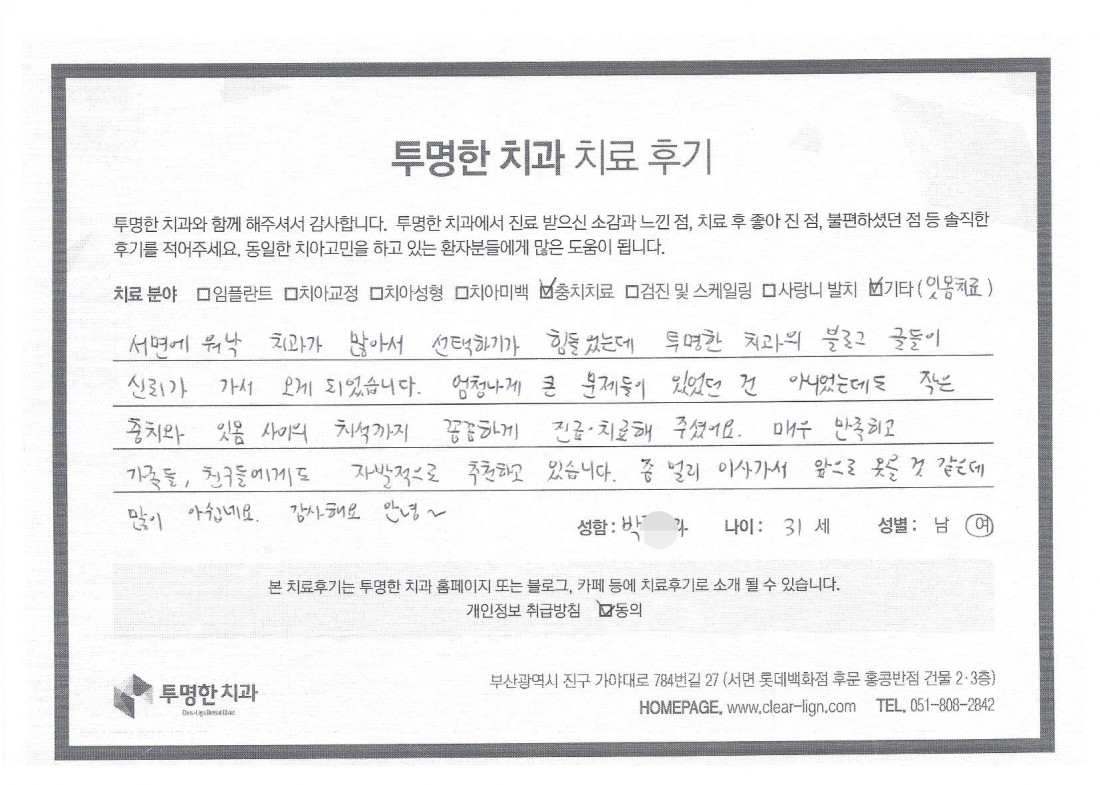 투명한 치과 치료 후기
투명한 치과와 함께 해주셔서 감사합니다. 투명한 치과에서 진료 받으신 소감과 느낀 점, 치료 후 좋아 진 점, 불편하셨던 점 등 솔직한
후기를 적어주세요. 동일한 치아고민을 하고 있는 환자분들에게 많은 도움이 됩니다.
치료 분야 □임플란트 □치아교정 □치아성형 □치아미백 ☑충치치료 □검진 및 스케일링 □사랑니 발치 ☑기타 (잇몸치료)
서면에 워낙 치과가 많아서 선택하기가 힘들었는데 투명한 치과의 블로그 글들이
신뢰가 가서 오게 되었습니다. 엄청나게 큰 문제들이 있었던 건 아니었는데도 작은
충치와 잇몸 사이의 치석까지 꼼꼼하게 진료·치료해 주셨어요. 매우 만족하고
가족들, 친구들에게도 자발적으로 추천하고 있습니다. 좀 멀리 이사가서 앞으로 못올 것 같은데
많이 아쉽네요. 감사해요 안녕~
성함 : 박 나이 : 31 세 성별 : 남 여
본 치료후기는 투명한 치과 홈페이지 또는 블로그, 카페 등에 치료후기로 소개 될 수 있습니다.
개인정보 취급방침 ☑동의
투명한 치과
Clear-Lign Dental Clinic
부산광역시 진구 가야대로 784번길 27 (서면 롯데백화점 후문 홍콩반점 건물 2·3층)
HOMEPAGE. www.clear-lign.com TEL. 051-808-2842